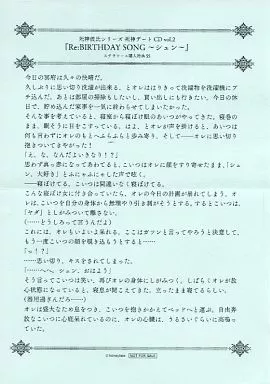 死神彼氏シリーズ 死神デートCD vol.2
「Re:BIRTHDAY SONG ～シュン～」
ステラワース購入特典SS
今日の冥府は久々の快晴だ。
久しぶりに思い切り洗濯が出来る、とオレははりきって洗濯物を洗濯機にブ
チ込んだ。あとは部屋の掃除もしたいし、買い出しにも行きたい。今日の休
日で、貯め込んだ家事を一気に終わらせてしまいたかった。
そんな事を考えていると、寝室から寝ぼけ眼のあいつがやってきた。寝巻の
まま、眠そうに目をこすっている。はよ、とオレが声を掛けると、あいつは
何も言わずにオレのもとへふらふらと歩み寄り、そして――オレに思い切り
抱きついてきやがった!
「え、な、なんだよいきなり!？」
思わず真っ赤になってあわてると、こいつはオレに顔をすり寄せたまま、「シュ
ン、大好き」とふにゃふにゃした声で呟く。
――寝ぼけてる。こいつは間違いなく寝ぼけてる。
こんな寝ぼけ女に付き合っていたら、オレの今日の計画が崩れてしまう。オレ
は、こいつを自分の身体から無理やり引き剥がそうとする。するとこいつは、
「ヤダ」としがみついて離さない。
(……どうしろって言うんだよ)
これには、もういいよいよ呆れる。ここはガツンと言ってやろうと決意して、
もう一度こいつの顔を覗き込もうとすると……
「っ!？」
……思い切り、キスをされてしまった。
「……へへ。シュン、おはよう」
そう言ってこいつは笑い、再びオレの身体にしがみつく。しばらくオレが放
心状態になっていると、寝息が聞こえてきた。立ったまま寝てるらしい。
(器用過ぎんだろ……)
オレは盛大なため息をつき、こいつを抱きかかえてベッドへと運ぶ。自由奔
放なこいつに心底呆れているのに、オレの心臓は、うるさいくらいに高鳴っ
ていた。
©honeybee
NOT FOR SALE